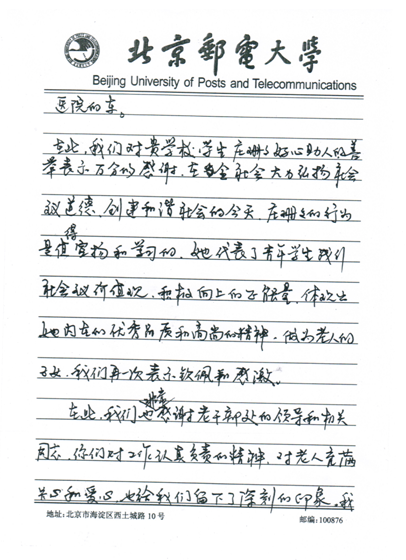 北京邮電大學
Beijing University of Posts and Telecommunications
医院的车。
在此,我们对贵学校学生庄珊珊好心助人的善
举表示万分的感谢,在全社会大力弘扬社会
议道德,创建和谐社会的今天,庄珊珊的行为
是值得宣扬和学习的,她代表了青年学生践行
社会议价值观,积极向上的正能量,体现出
她内在的优秀品质和高尚的精神,做为老人的
子女,我们再一次表示钦佩和感激。
在此,我们也感谢老干部处的领导和有关
同志,你们对工作认真负责的精神,对老人充满
关心和爱心也给我们留下了深刻的印象。我
地址:北京市海淀区西土城路10号
邮编:100876